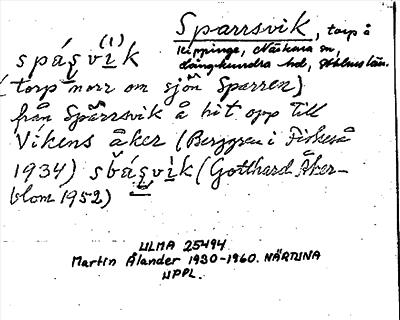 Sparrsvik, torp å
Kippinge, Närtuna sn,
Långhundra hd, Sthlms län.
spás̬v(i)k
(torp norr om sjön Sparren)
från Sparrsvik å hit opp till
Vikens åker (Berggren i
1934) sbás̬vik (Gotthard Åker-
blom 1952)
ULMA 25494
Martin Ålander 1930-1960. NÄRTUNA
UPPL.